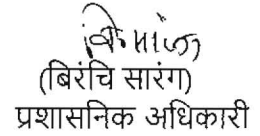 (बिरंचि सारंग)
प्रशासनिक अधिकारी